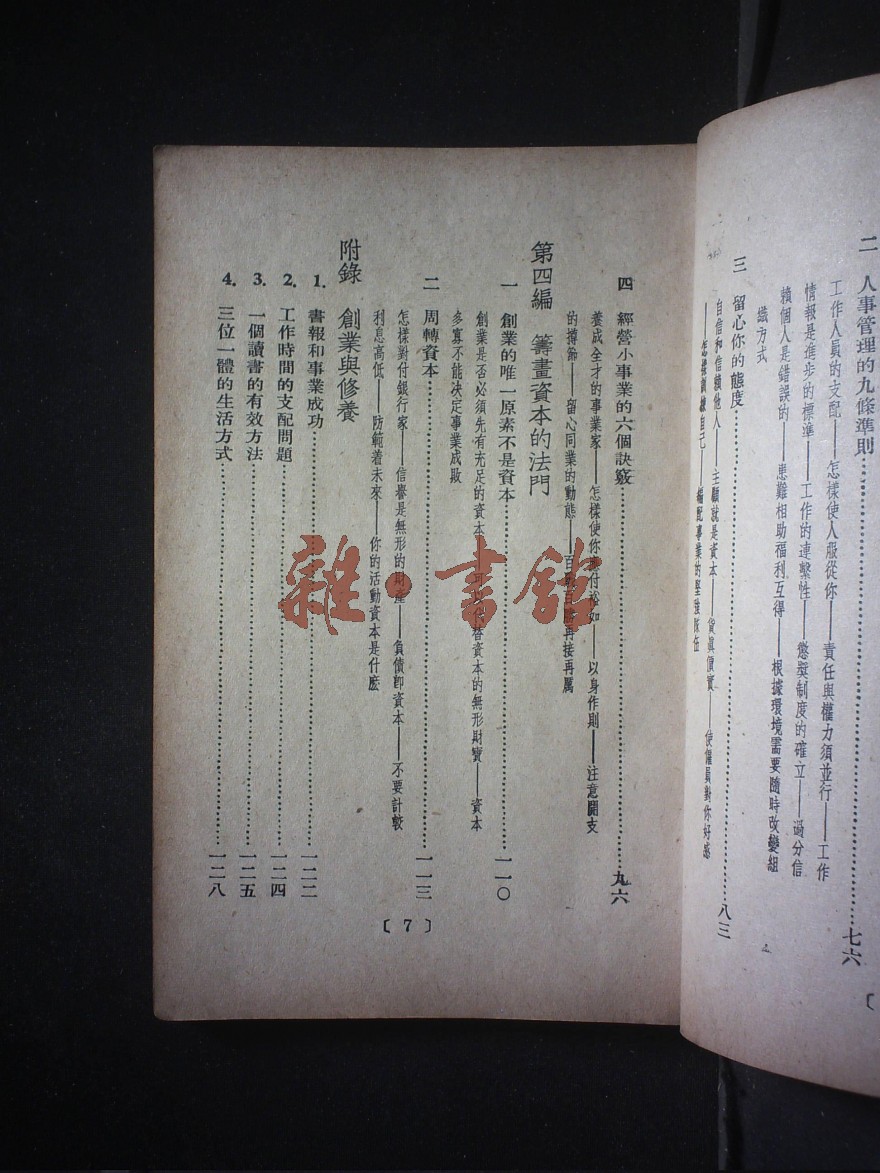 二 人事管理的九條準則……七六
工作人員的支配——怎樣使人服從你——責任與權力須並行——工作
情報是進步的標準——工作的連繫性——懲獎制度的確立——過分信
賴個人是錯誤的——患難相助福利互得——根據環境需要隨時改變組
織方式
三 留心你的態度……八三
自信和信賴他人——主顧就是資本——貨真價實——使僱員對你好感
——怎樣訓練自己——編配事業的堅強隊伍
四 經營小事業的六個訣竅……九六
養成全才的事業家——怎樣使你應付裕如——以身作則——注意開支
的撙節——留心同業的動態——百戰百勝再接再厲
第四編 籌畫資本的法門
一 創業的唯一原素不是資本……一一〇
創業是否必須先有充足的資本——可以代替資本的無形財寶——資本
多寡不能決定事業成敗
二 周轉資本……一一三
怎樣對付銀行家——信譽是無形的財產——負債即資本——不要計較
利息高低——防範着未來——你的活動資本是什麽
附錄 創業與修養
1. 書報和事業成功……一二二
2. 工作時間的支配問題……一二四
3. 一個讀書的有效方法……一二五
4. 三位一體的生活方式……一二八
〔7〕
〔
雜·書館